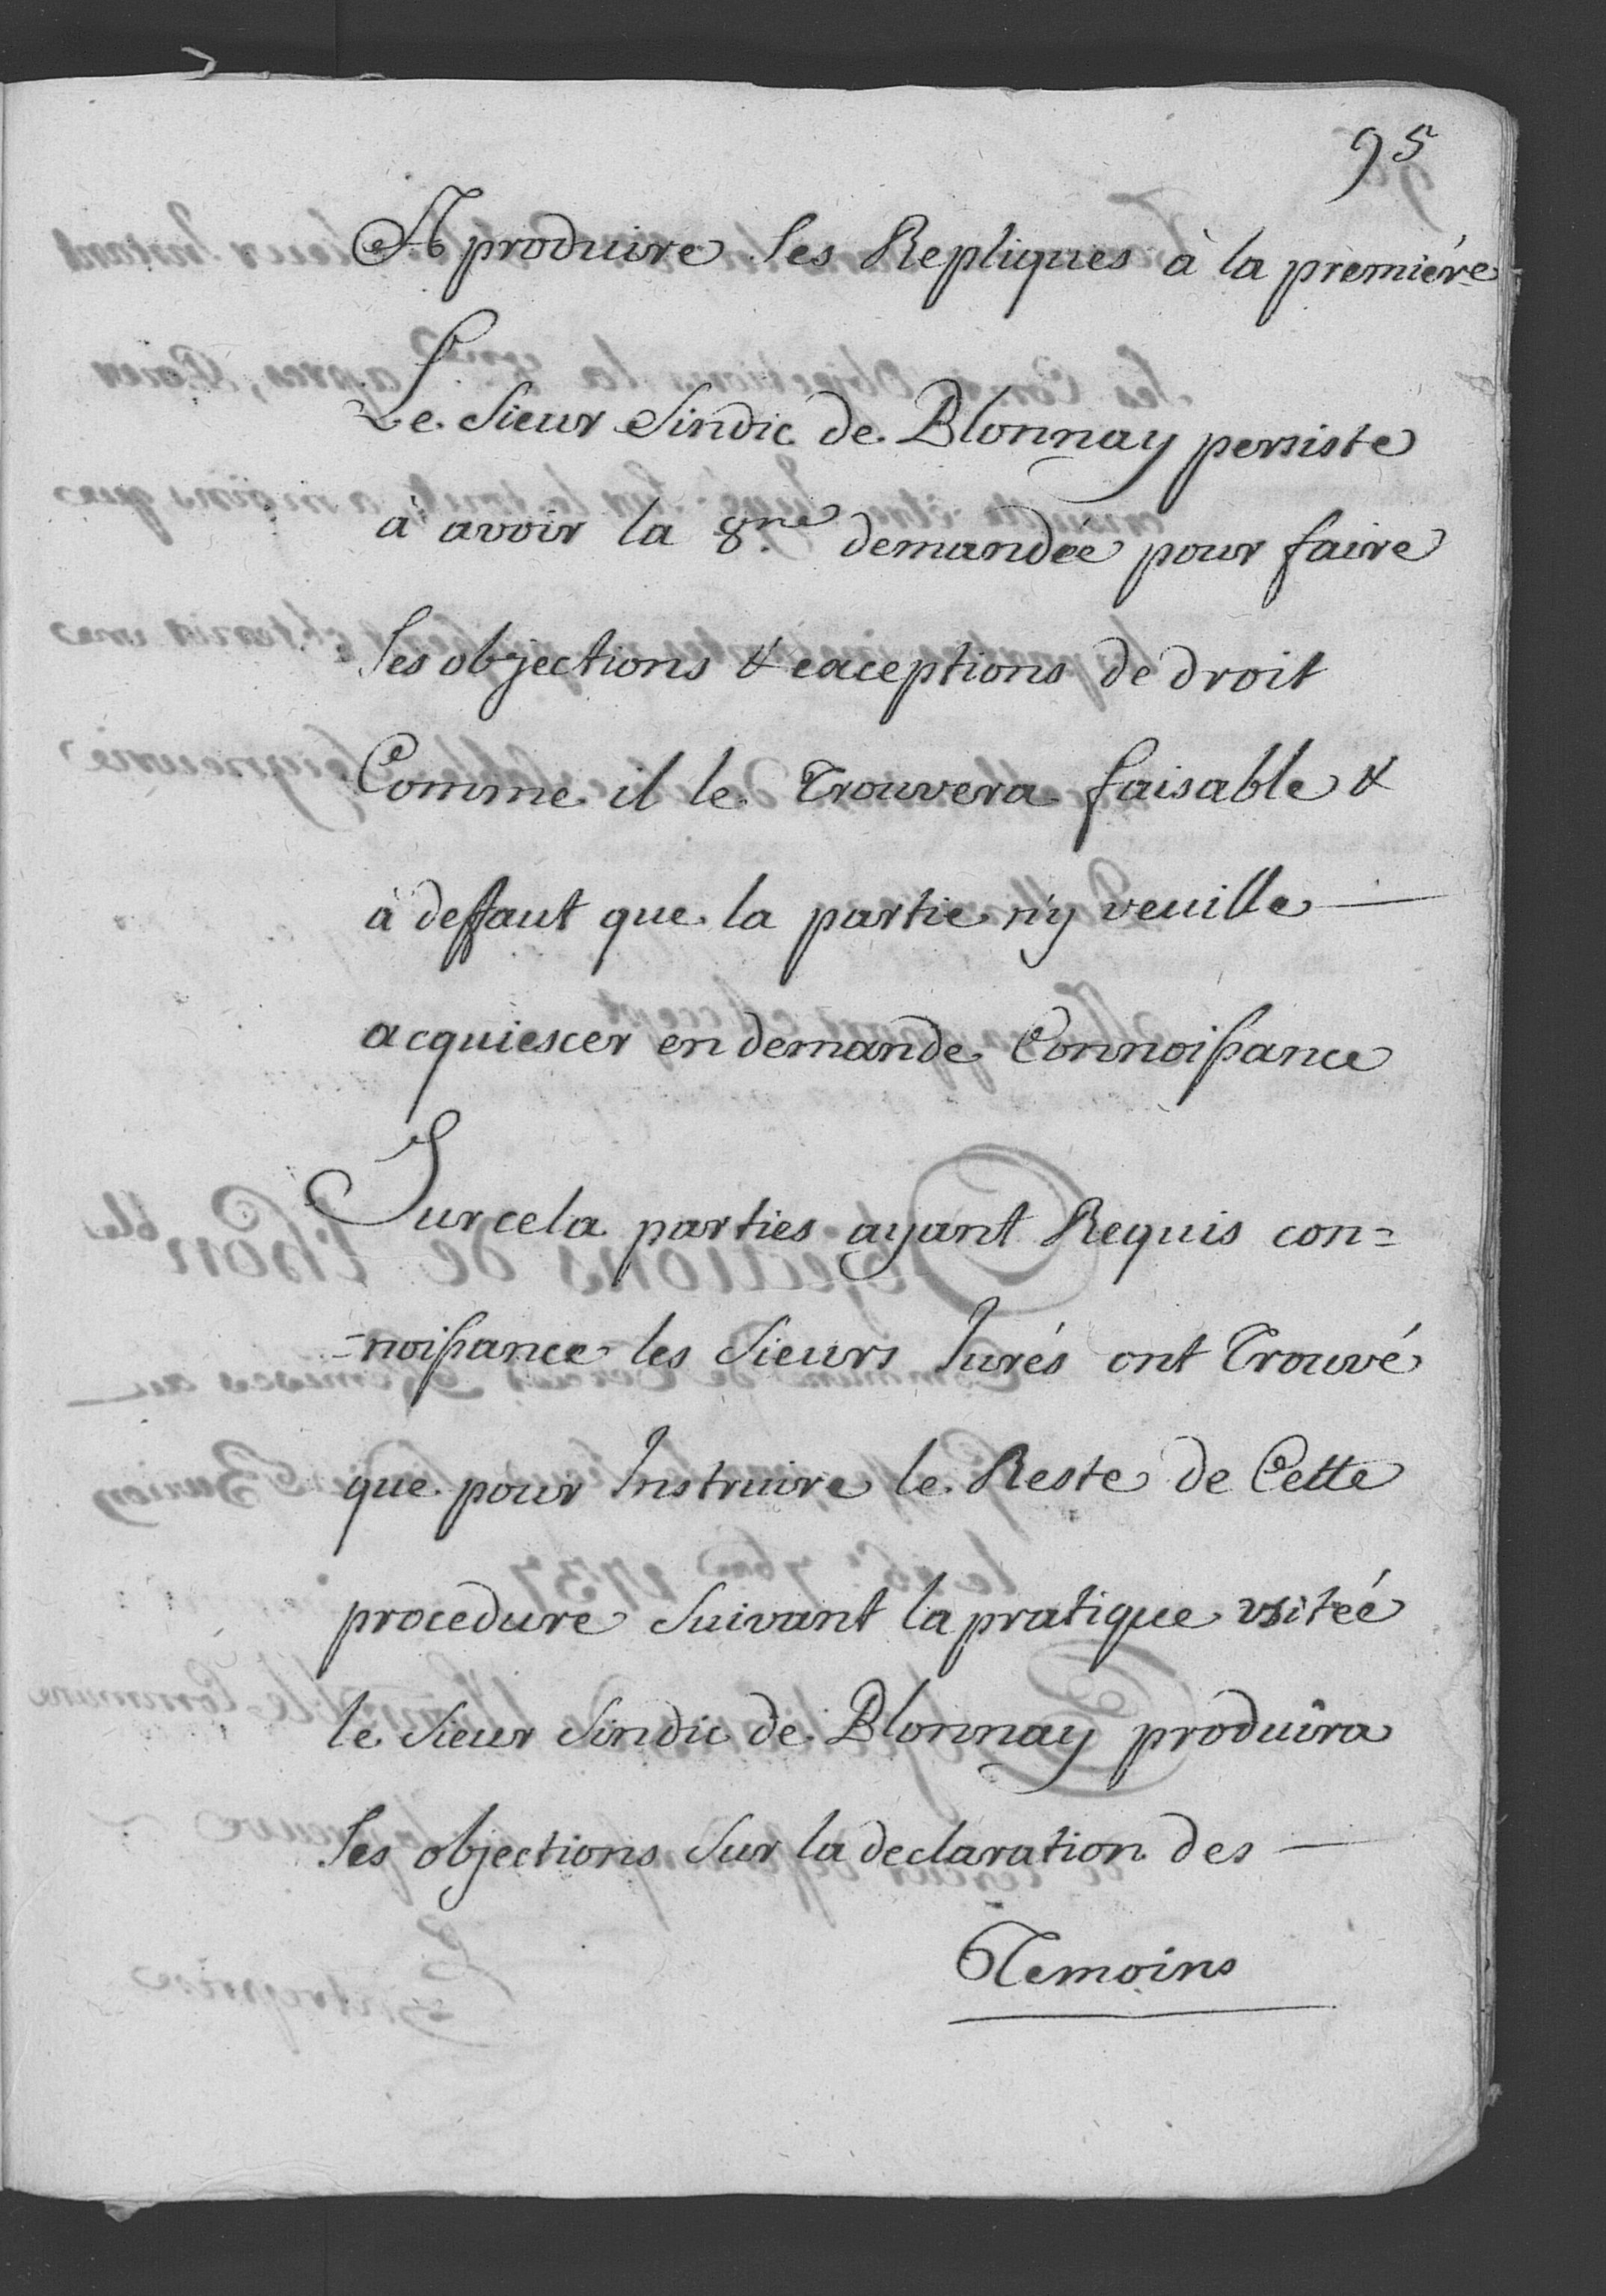 95
A produire ses Repliques à la premiére
Le Sieur Sindic de Blonnay persiste
à avoir la 8.ne demandée pour faire
ses objections & exceptions de droit
Comme il le Trouvera faisable &
à deffaut que la partie n'y veuille —
acquiescer en demande Connoissance
Sur cela parties ayant Requis con=
=noissance les Sieurs Jurés ont Trouvé
que pour Instruire le Reste de Cette
procedure Suivant la pratique usitée
le Sieur Sindic de Blonnay produira
ses objections Sur la declaration des —
Temoins